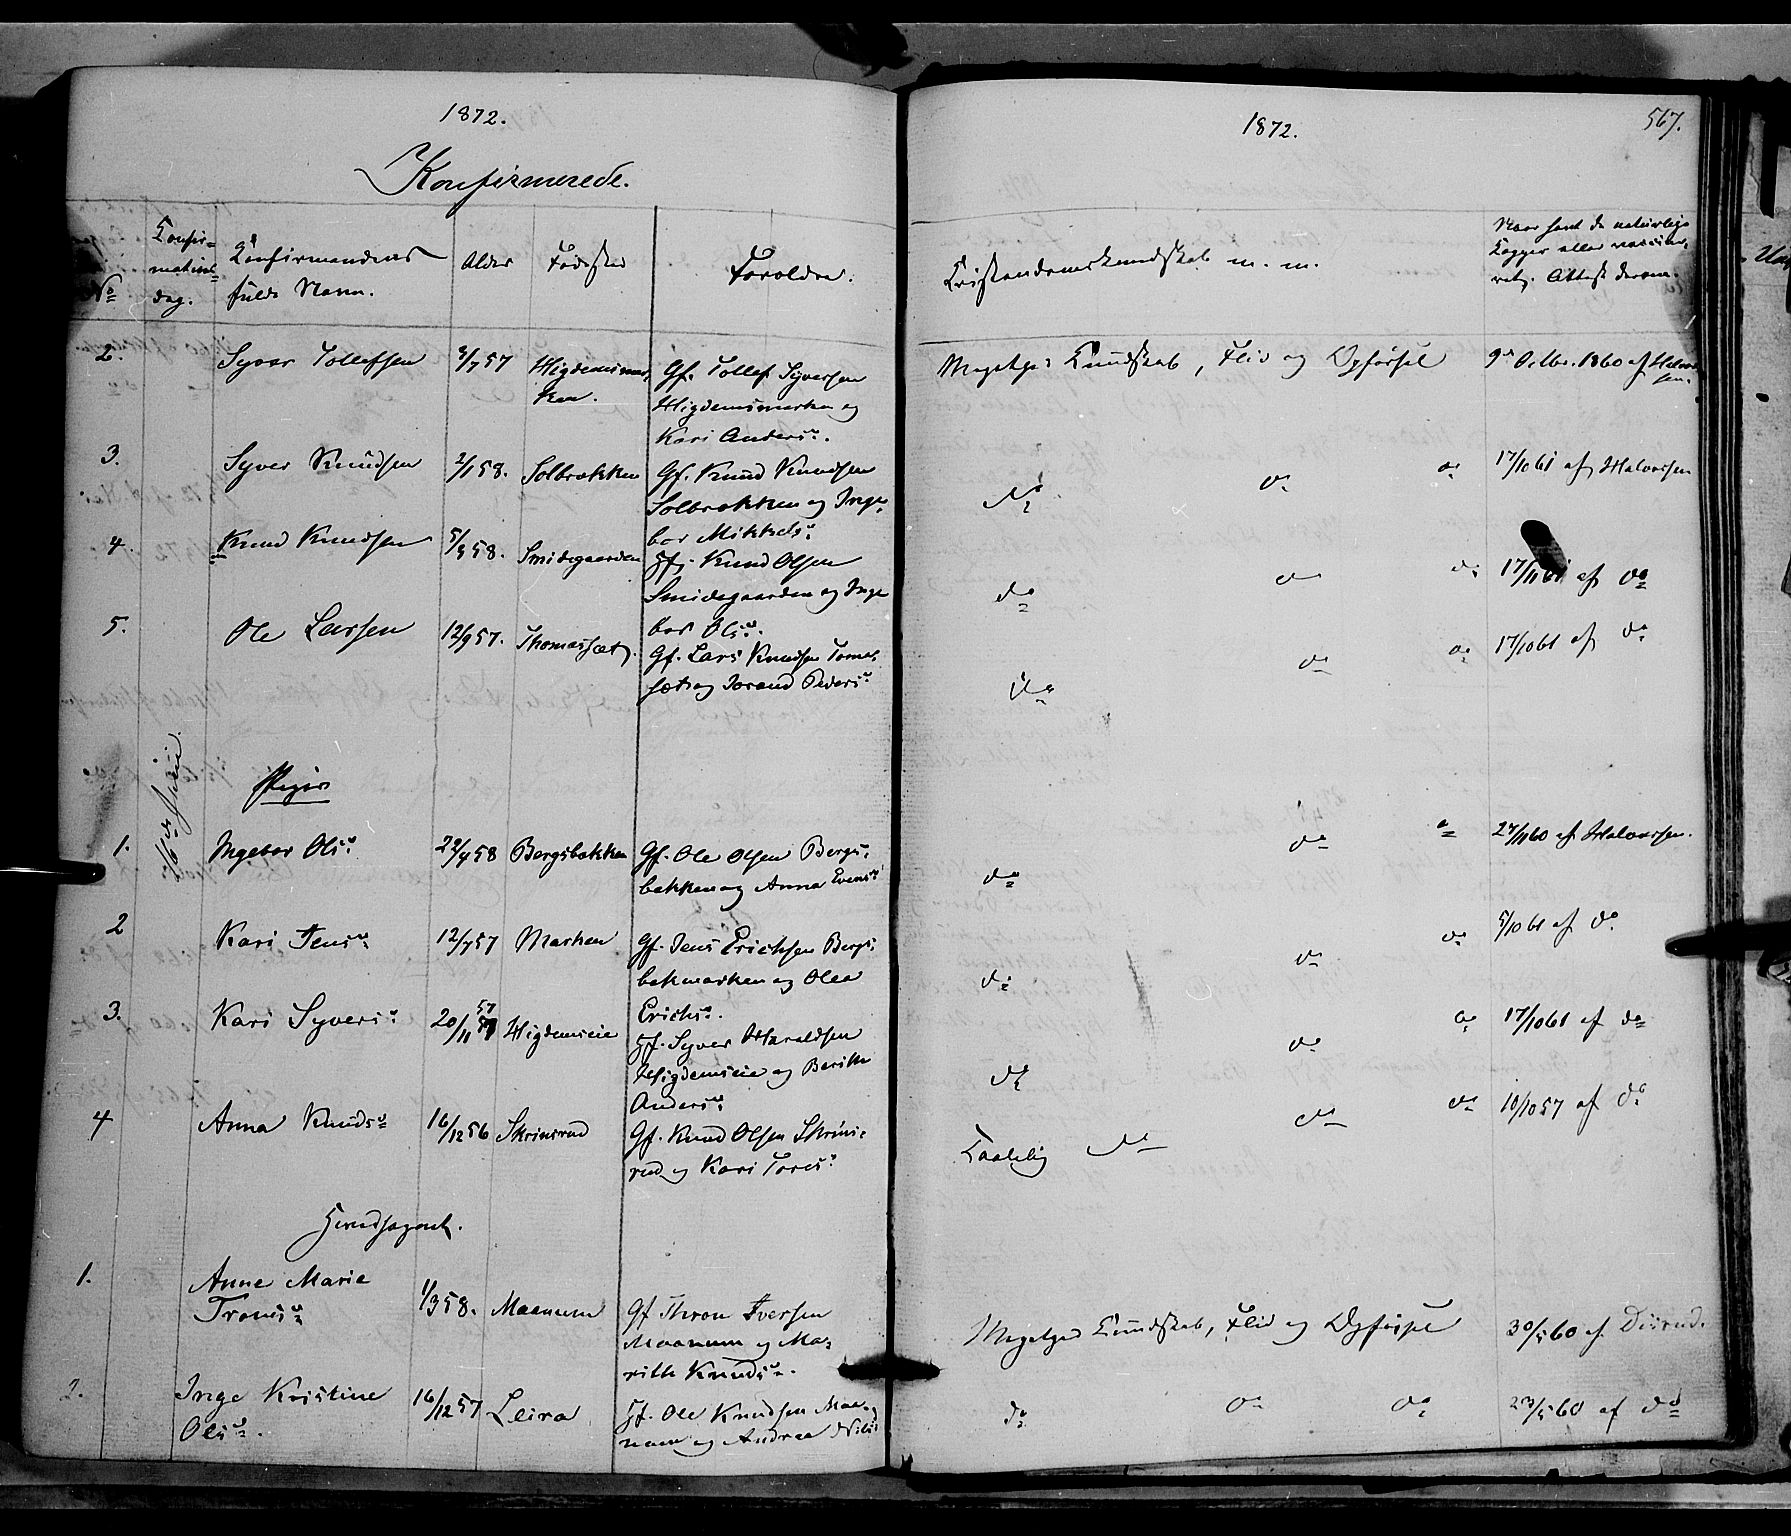 1872.
Konfirmerede.
No
Konfir=
mations=
dag.
Konfirmandens
fulde Navn.
Alder
Fødested
Forældre.
2. Syver Tollefsen 3/7 57 Higdemsmar,
ken.
Gf. Tollef Syversen
Higdemsmarken og
Kari Andersd.
3. Syver Knudsen 2/1 58. Solbrækken
Gf. Knud Knudsen
Solbrækken og Inge,
bor Mikkelsd.
4. Knud Knudsen 5/3 58. Smidegaarden
Gf. Knud Olsen
Smidegaarden og Inge
bor Olsd.
5. Ole Larsen 12/9 57. Thomasset
Gf. Lars Knudsen Tomas,
set og Jorand Pedersd.
16de Juni
Piger
1. Ingebor Olsd. 22/4 58 Bergsbakken
Gf. Ole Olsen Bergs,
bakken og Anna Evensd.
2 Kari Jensd. 12/7 57 Marken
Gf. Jens Erichsen Bergs,
bakmarken og Olea
Erichsd.
3. Kari Syversd. 20/11 57 Higdemseie
Gf. Syver Haraldsen
Higdemseie og Berithe
Andersd.
4 Anna Knudsd. 16/12 56 Skrinsrud
Gf. Knud Olsen Skrins,
rud og Kari Toresd.
1. Anne Marie
Tronsd. 1/3 58. Maanum
Gf Thron Iversen
Maanum og Ma,
rith Knudsd.
2. Inge Kristine
Olsd. 16/12 57 Leira
Gf. Ole Knudsen Maa,
num og Andrea Nilsd.
1872.
567.
Kristendomskundskab m. m.
Naar havt de naturlige
Kopper eller vaccine,
ret, Attest derom.
Megetgod Kundskab, Flid og Opførsel 9de Oktbr. 1860 af Halvor
sen.
do do do 17/10 61 af Halvorsen
do do do 17/11 61 af do
do do do 17/10 61 af do
do do do 27/11 60 af Halvorsen.
do do do 5/10 61 af do
do do do 17/10 61 af do
Taalelig do do do 10/10 57 af do
Megetgod Kundskab, Flid og Opførsel 30/5 60 af Diisrud.
do do do 23/5 60 af do